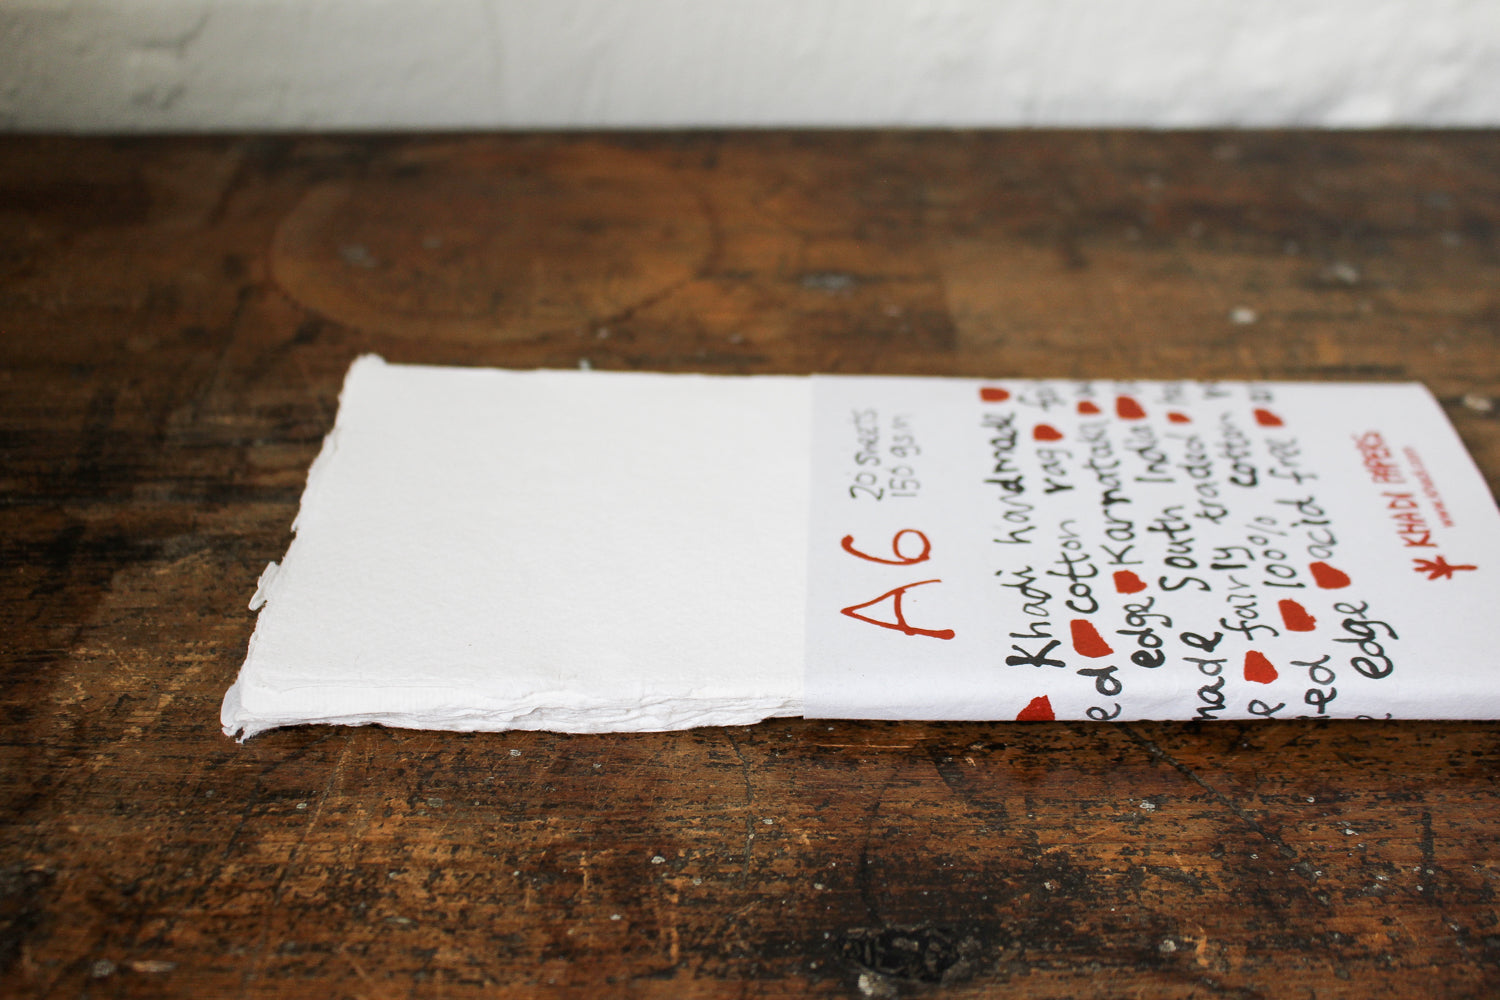 A6
20 sheets
150 gsm
Khadi handmade
cotton rag
ed edge Karnataka
edge South India
made fairly traded
100% cotton
acid free
edge
KHADI PAPERS
www.khadi.com